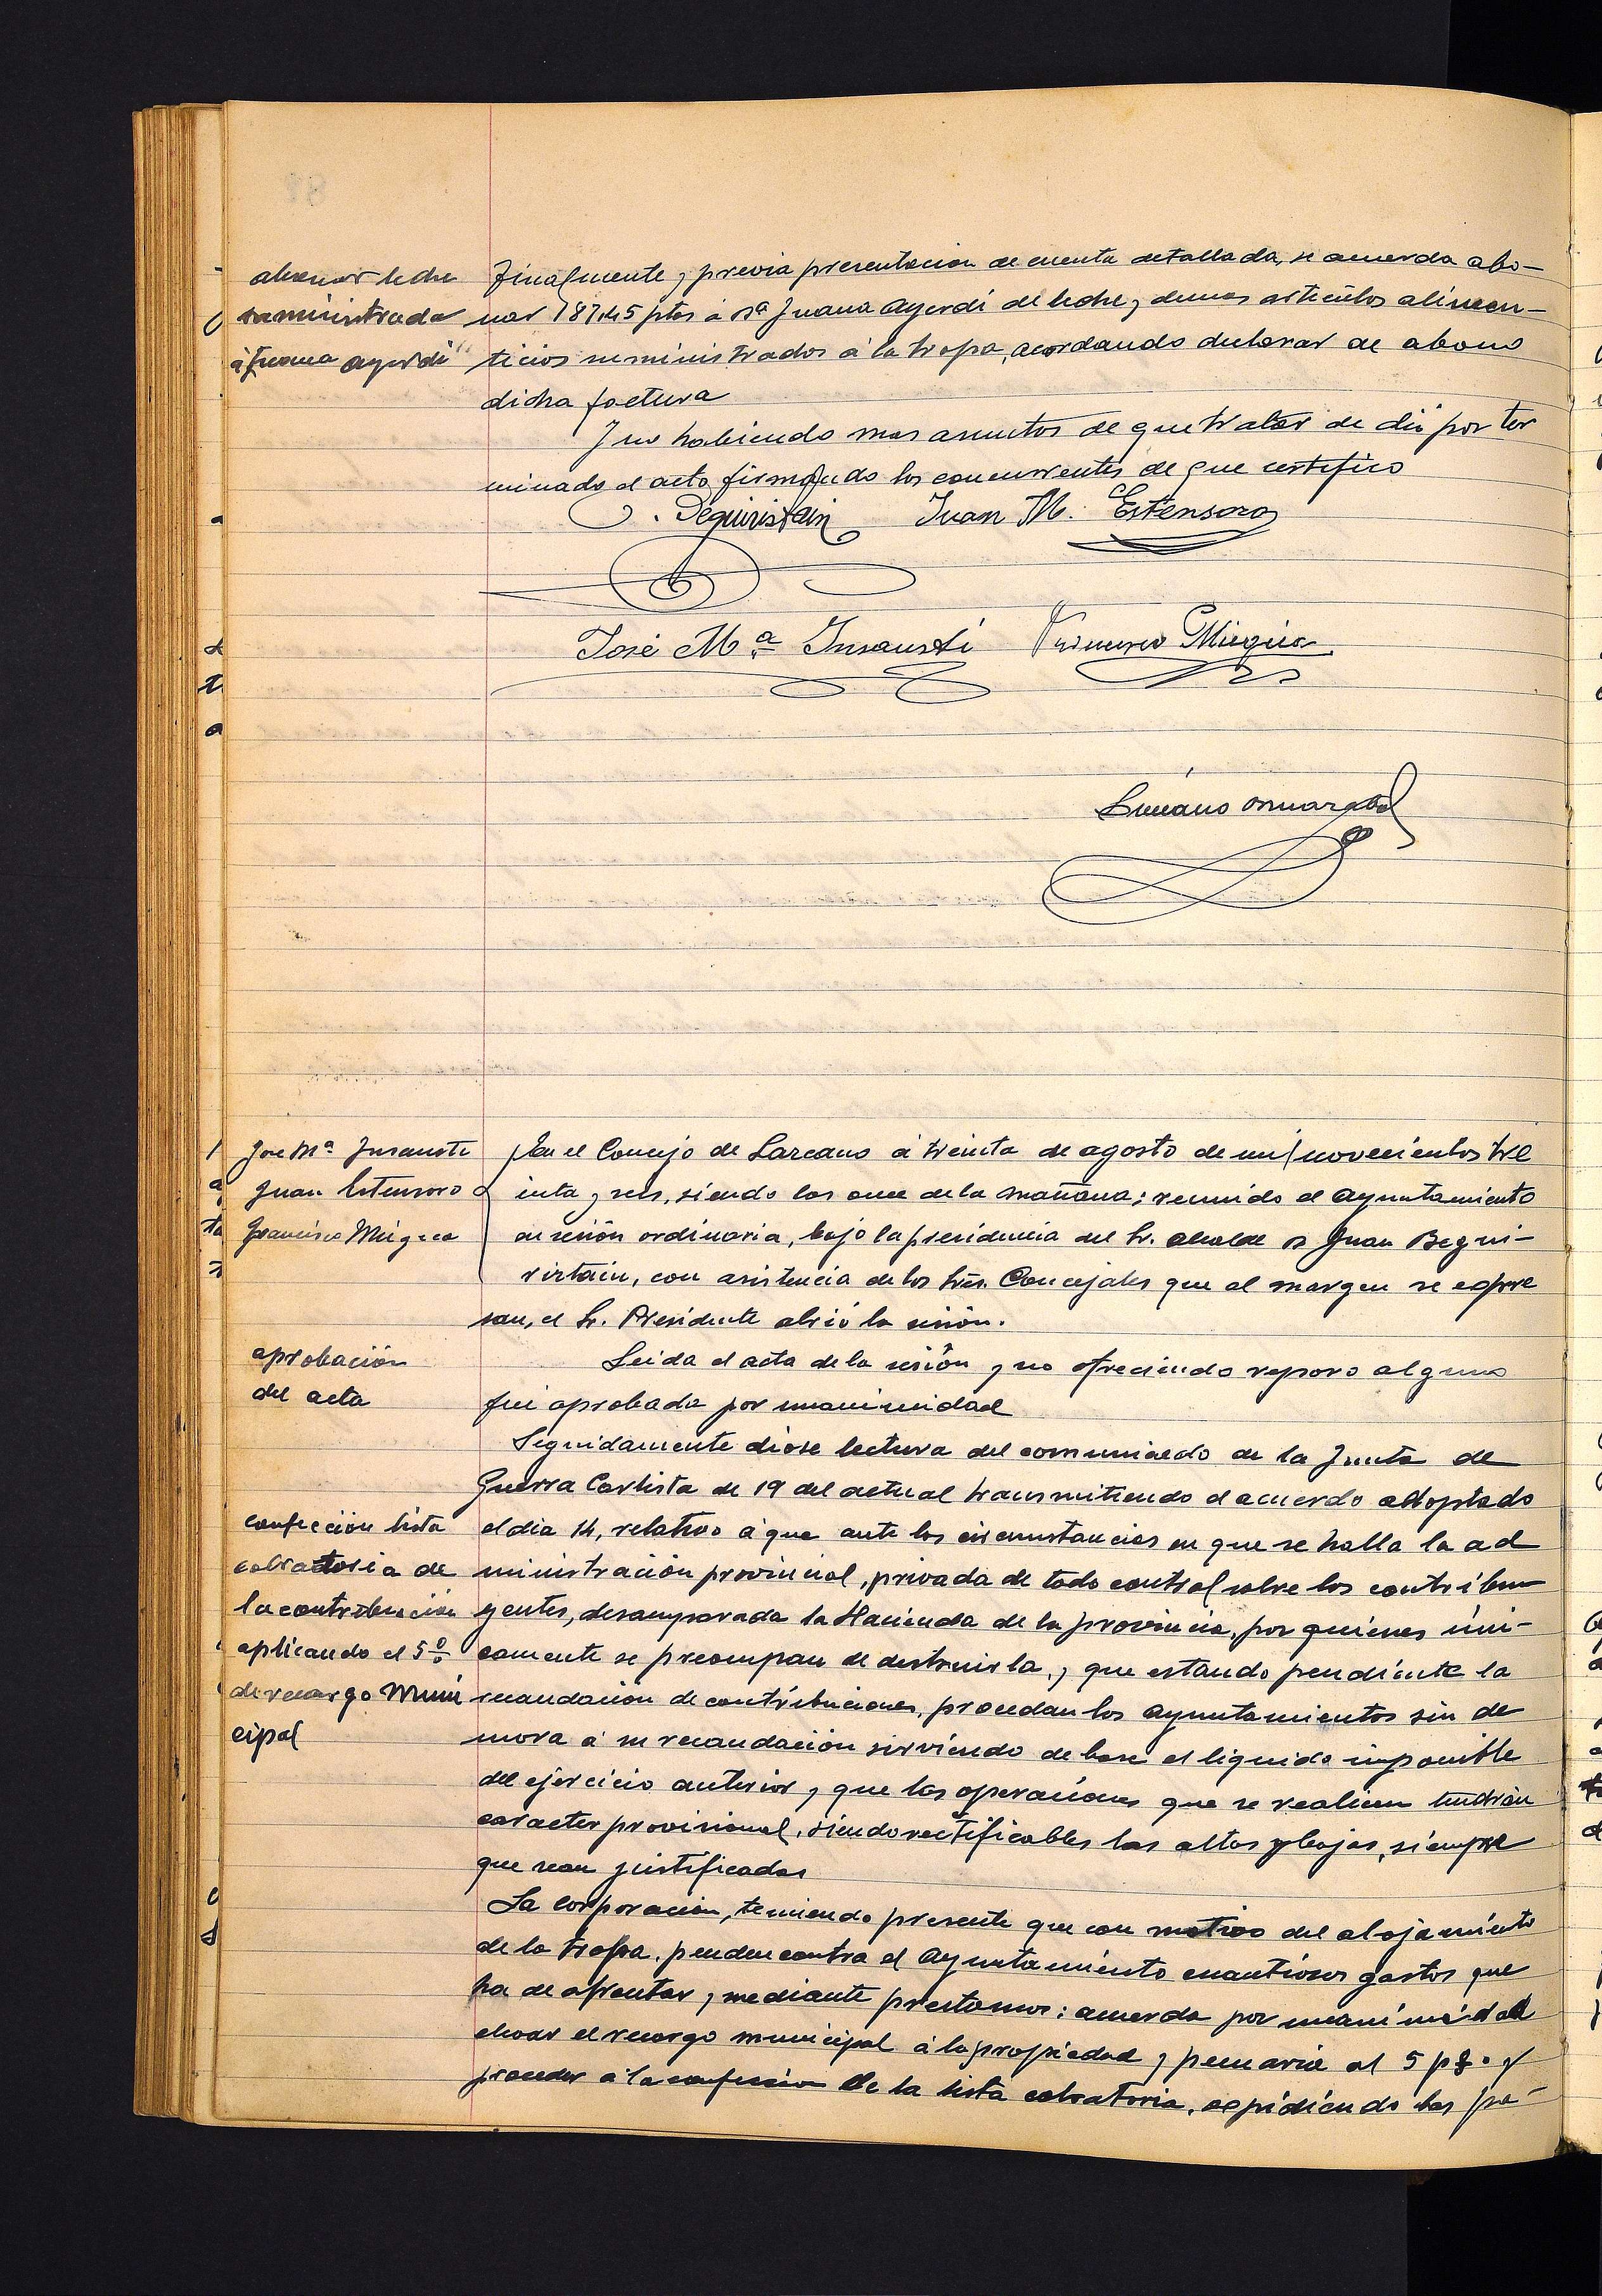 abonar leche
suministrada
á Juana Ayerdi
Finalmente, previa presentacion de cuenta detallada, se acuerda abo-
nar 187,45 ptas á Dª Juana Ayerdi de leche y demas artículos alimen-
ticios suministrados á la tropa, acordando declarar de abono
dicha factura
Y no habiendo mas asuntos de que tratar se dió por ter
minado el acto firmando los concurrentes de que certifico
J. Beguiristain Juan M. Estensoro
José Mª Insausti Francisco Múgica
Luciano
Jose Mª Insausti
Juan Estensoro
Francisco Múgica
En el Concejo de Lazcano á treinta de agosto de mil novecientos tre
inta y seis, siendo las once de la mañana; reunido el Ayuntamiento
en sesión ordinaria, bajo la presidencia del Sr. Alcalde D Juan Begui-
ristain, con asistencia de los Sres. Concejales que al margen se expre
san, el Sr. Presidente abrió la sesión.
aprobación
del acta
Leida el acta de la sesión y no ofreciendo reparo alguno
fué aprobada por unanimidad
Seguidamente dióse lectura del comunicado de la Junta de
Guerra Carlista de 19 del actual transmitiendo el acuerdo adoptado
el dia 14, relativo á que ante las circunstancias en que se halla la ad
ministración provincial, privada de todo control sobre los contribu
yentes, desamparada la Hacienda de la provincia, por quienes úni-
camente se preocupan de destruirla, y que estando pendiente la
recaudación de contribuciones, procedan los Ayuntamientos sin de
mora á su recaudación sirviendo de base el liquido imponible
del ejercicio anterior y que las operaciones que se realicen tendrán
caracter provisional, siendo rectificables las altas y bajas, siempre
que sean justificadas
confección lista
cobratoria de
la contribución
aplicando el 5º
de recargo Muni
cipal
La corporación, teniendo presente que con motivo del alojamiento
de la tropa, penden contra el Ayuntamiento cuantiosos gastos que
ha de afrontar, mediante prestamos: acuerda por unanimidad
elevar el recargo municipal á la propiedad y pecuaria al 5 p%. y
proceder á la confeccion de la lista cobratoria, expidiendo los pa-